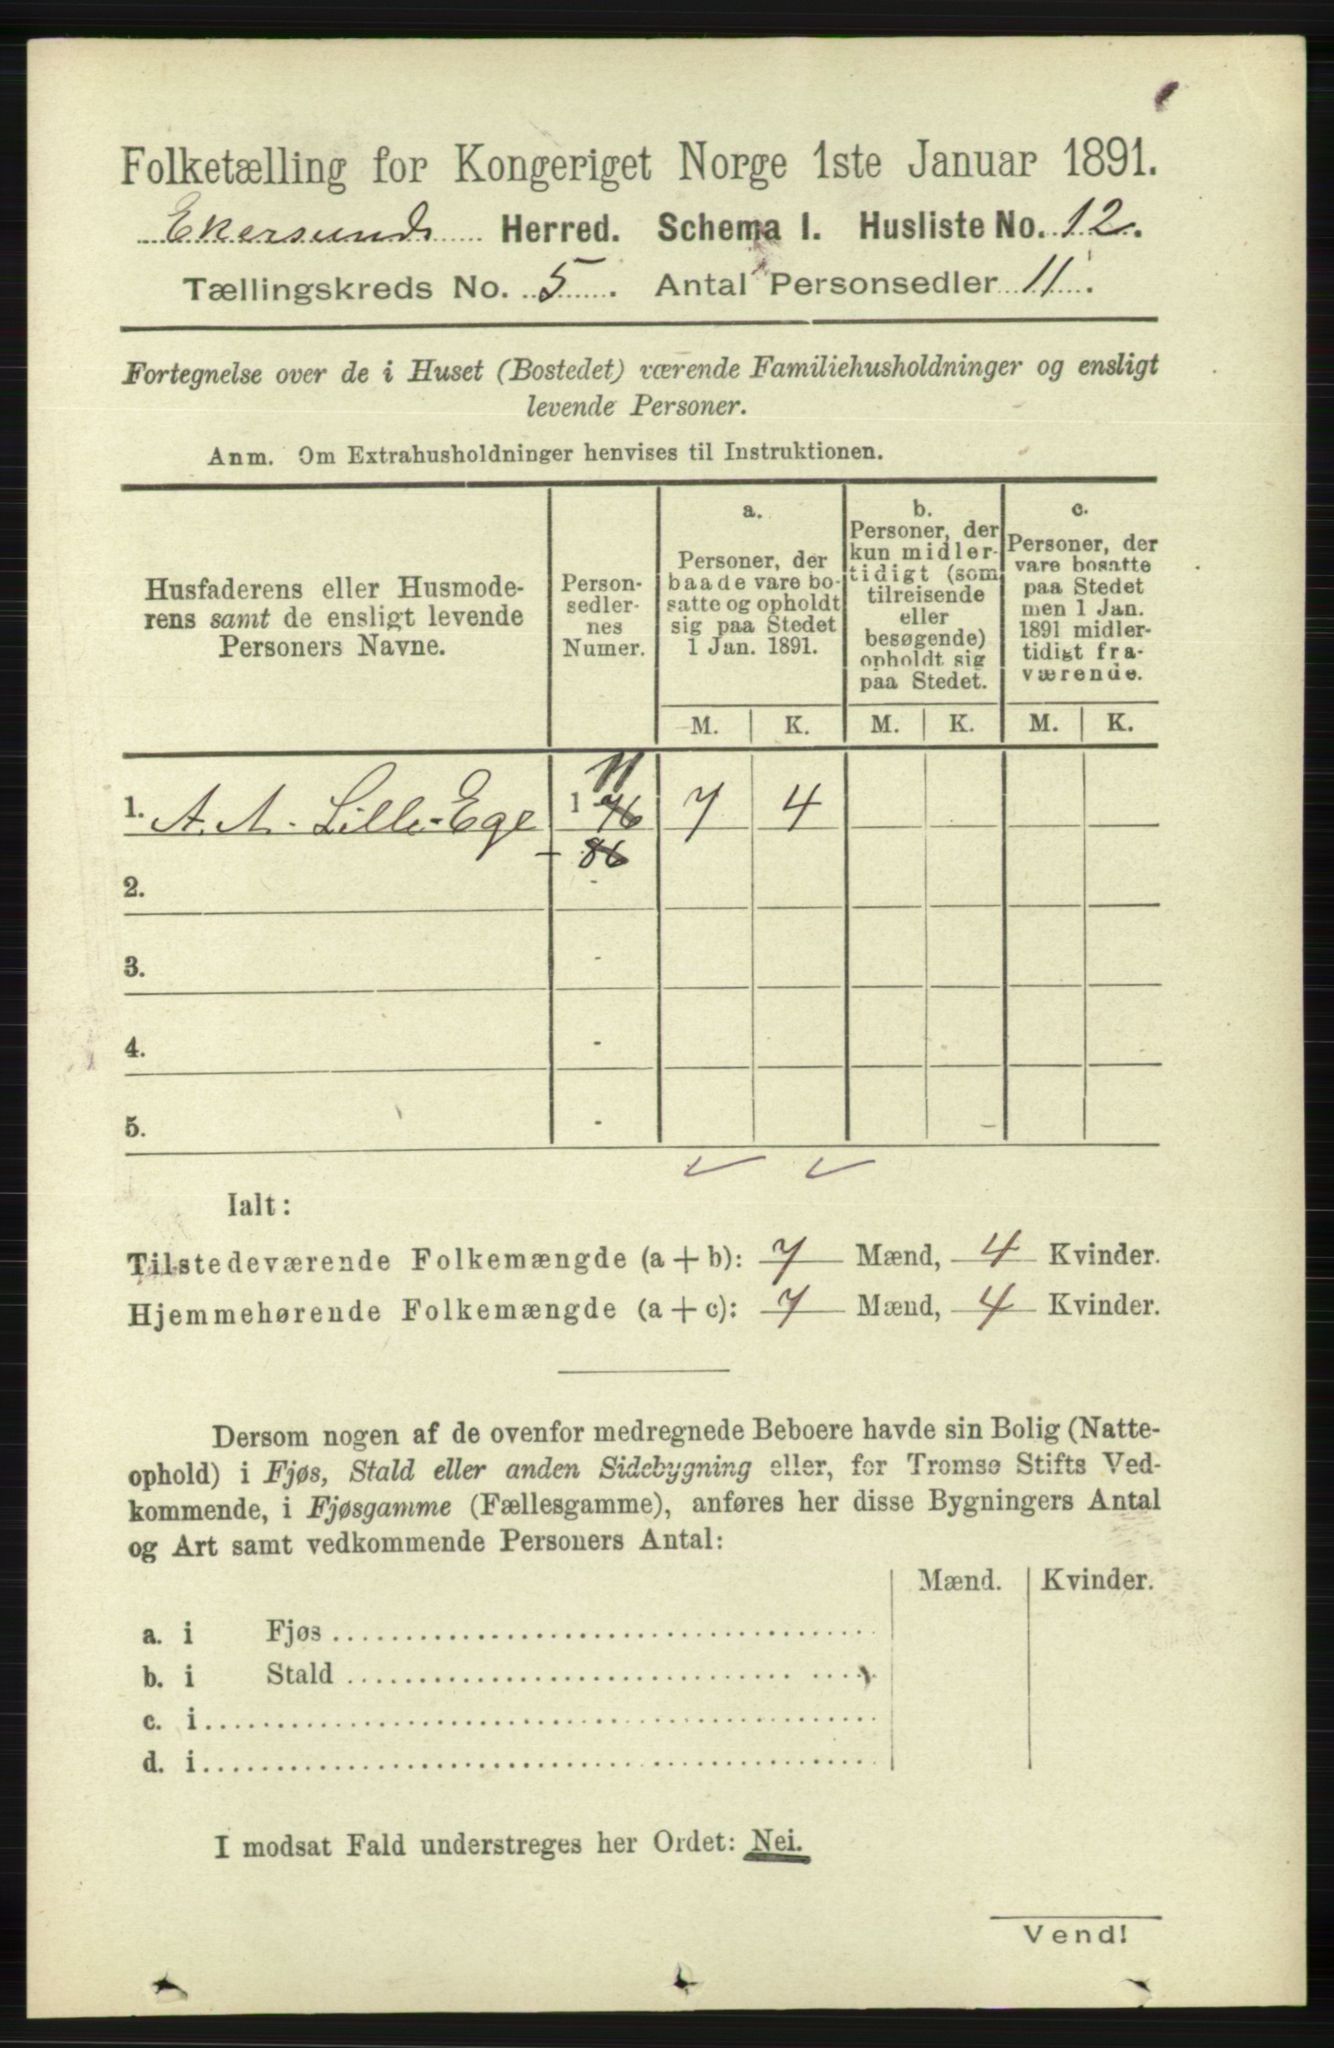 Folketælling for Kongeriget Norge 1ste Januar 1891.
Ekersunds Herred. Schema I. Husliste No. 12.
Tællingskreds No. 5. Antal Personsedler 11.
Fortegnelse over de i Huset (Bostedet) værende Familiehusholdninger og ensligt
levende Personer.
Anm. Om Extrahusholdninger henvises til Instruktionen.
Husfaderens eller Husmode-
rens samt de ensligt levende
Personers Navne.
Person-
sedler-
nes
Numer.
a.
Personer, der
baade vare bo-
satte og opholdt
sig paa Stedet
1 Jan. 1891.
b.
Personer, der
kun midler-
tidigt (som
tilreisende
eller
besøgende)
opholdt sig
paa Stedet.
c.
Personer, der
vare bosatte
paa Stedet
men 1 Jan.
1891 midler-
tidigt fra-
værende.
M. K. M. K. M. K.
11
1. A. A. Lille-Ege 1 - 76 7 4
- 86
2. -
3. -
4. -
5. -
Ialt:
Tilstedeværende Folkemængde (a + b): 7 Mænd, 4 Kvinder.
Hjemmehørende Folkemængde (a + c): 7 Mænd, 4 Kvinder.
Dersom nogen af de ovenfor medregnede Beboere havde sin Bolig (Natte-
ophold) i Fjøs, Stald eller anden Sidebygning eller, for Tromsø Stifts Ved-
kommende, i Fjøsgamme (Fællesgamme), anføres her disse Bygningers Antal
og Art samt vedkommende Personers Antal:
Mænd. Kvinder.
a. i Fjøs
b. i Stald
c. i
d. i
I modsat Fald understreges her Ordet: Nei.
Vend!